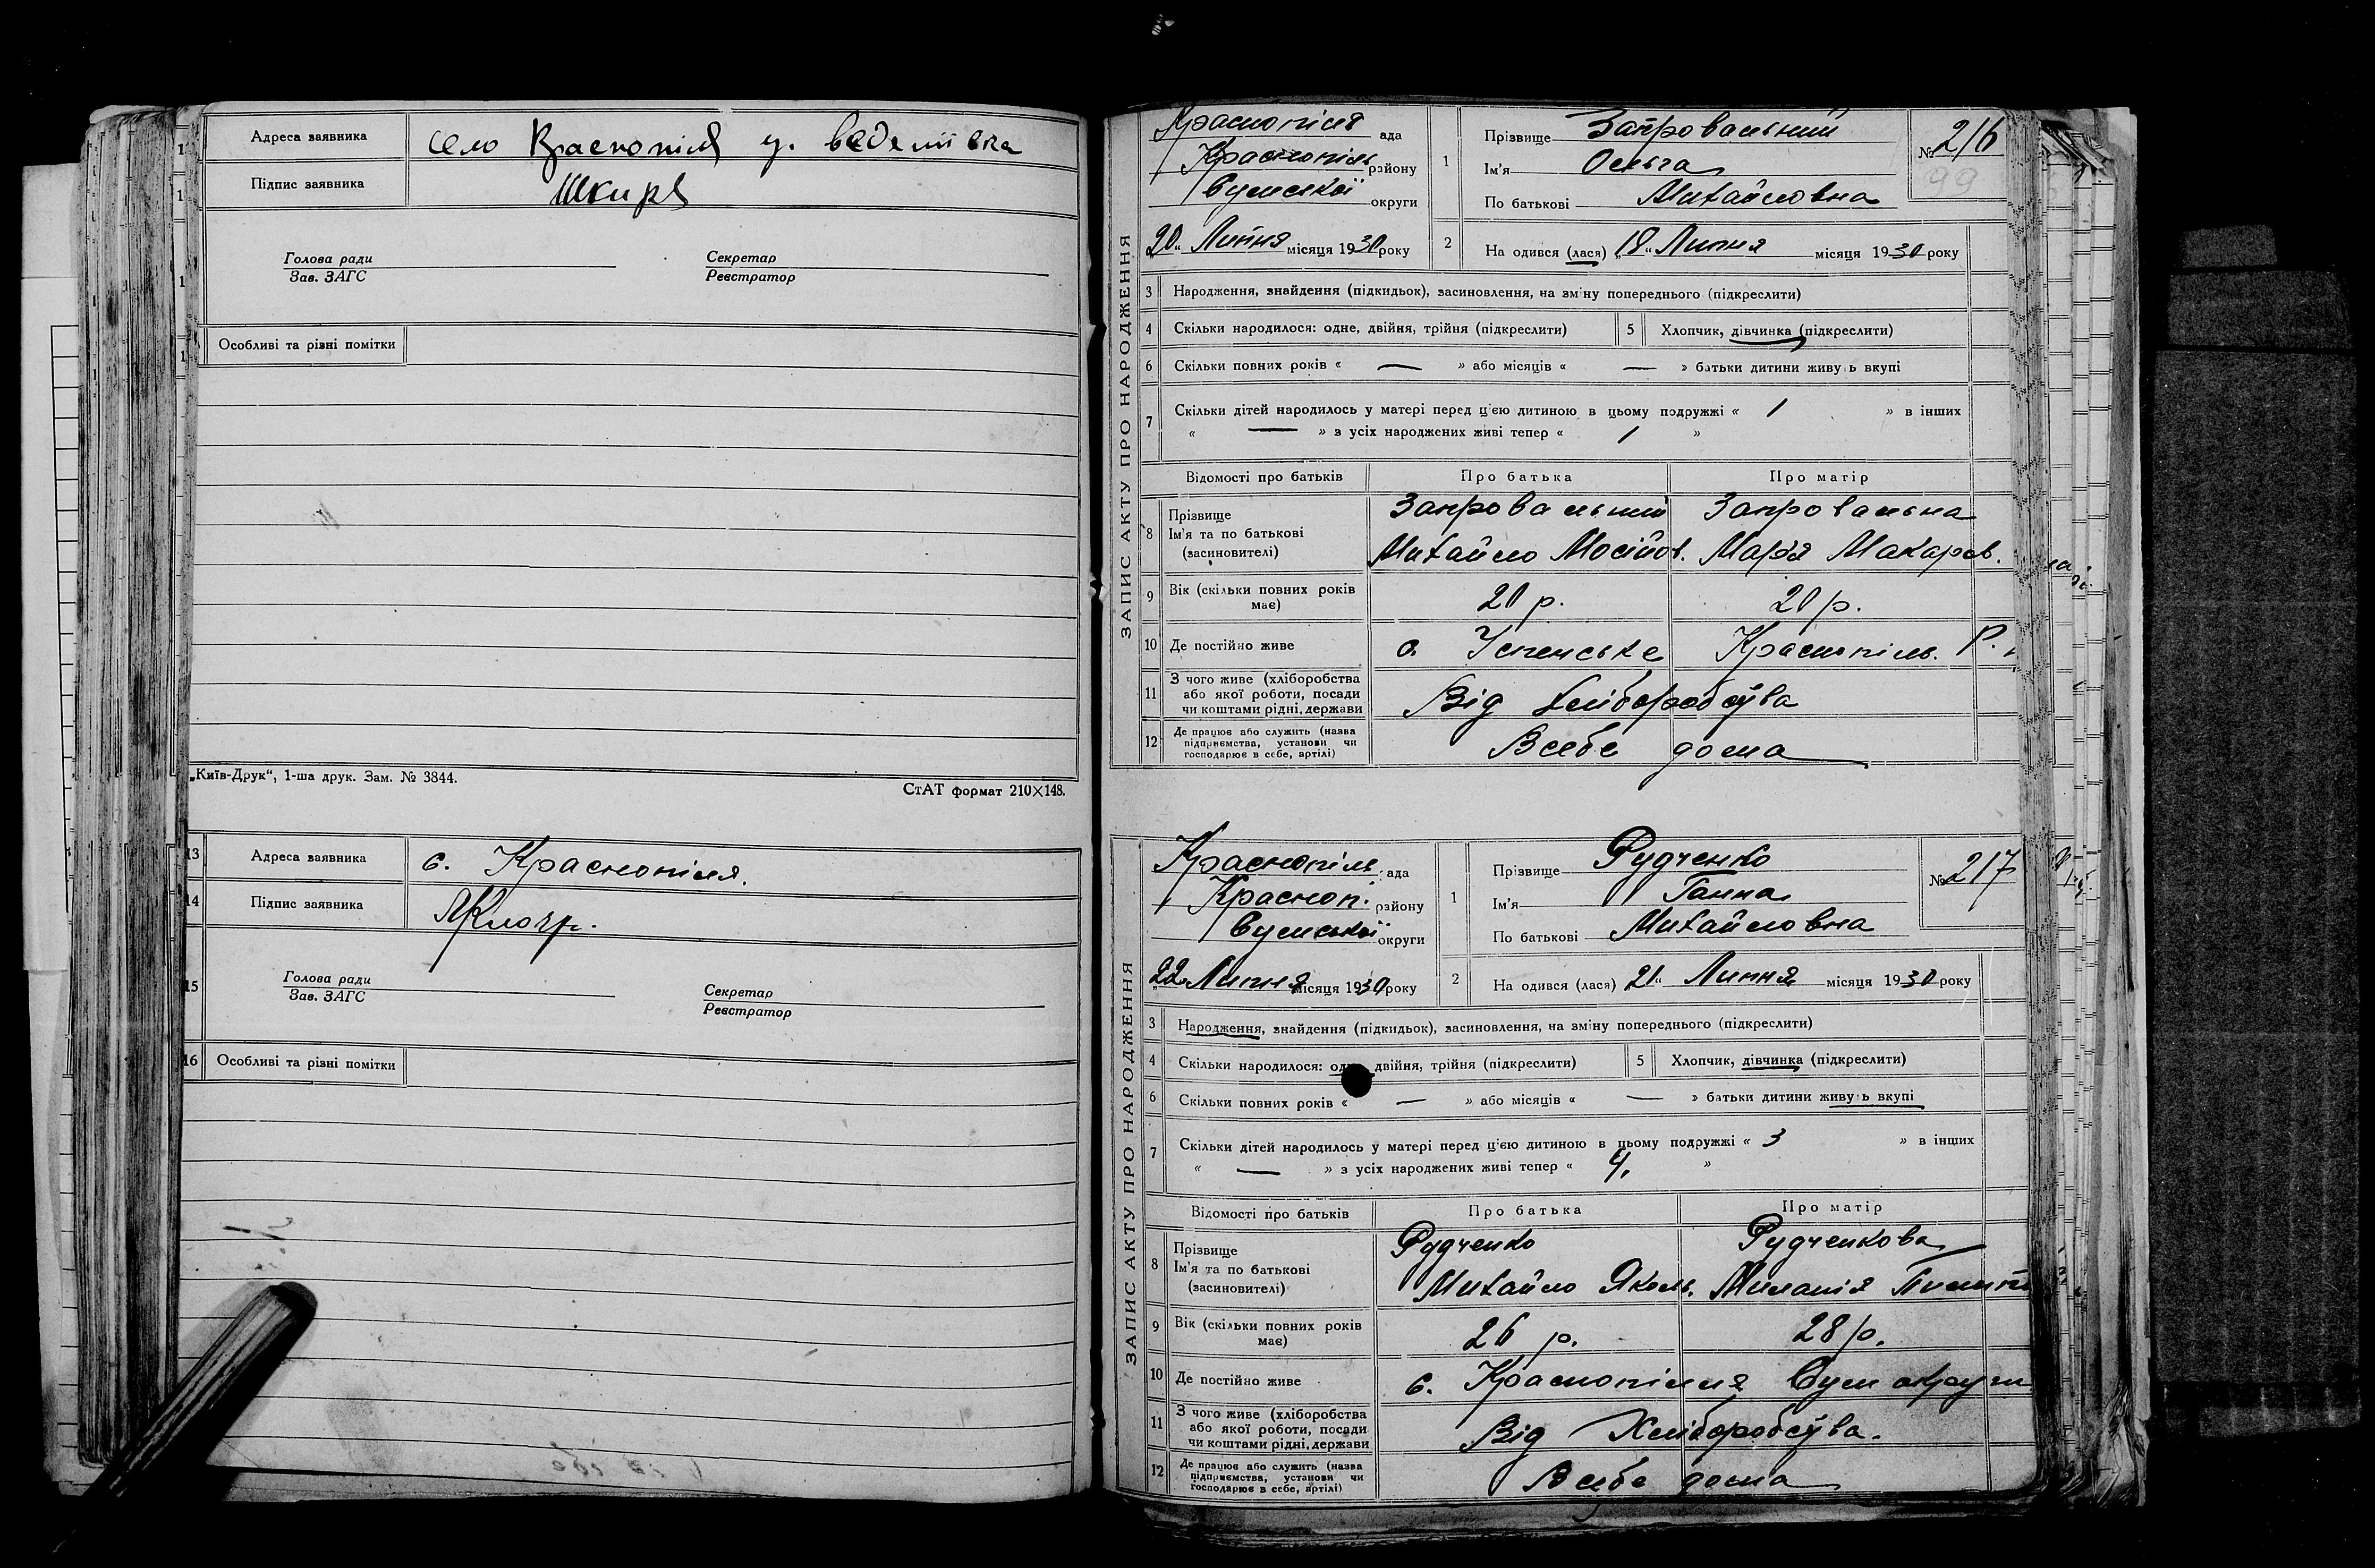 Адреса заявника село Краснопіля у.
Підпис заявника Шкиря
Голова ради Секретар
Зав. ЗАГС Реєстратор
Особливі та різні помітки
„Київ-Друк“, 1-ша друк. Зам. № 3844.
СтАТ формат 210×148.
13 Адреса заявника с. Краснопіля.
14 Підпис заявника
15 Голова ради Секретар
Зав. ЗАГС Реєстратор
16 Особливі та різні помітки
ЗАПИС АКТУ ПРО НАРОДЖЕННЯ
Краснопіля ада
Краснопіль району
Сумської округи
20 „ Липня місяця 1930 року
1 Прізвище Запровальний
Ім'я Ольга
По батькові Михайловна
№ 216
99
2 На одився (лася) „18 „ Липня місяця 1930 року
3 Народження, знайдення (підкидьок), засиновлення, на зміну попереднього (підкреслити)
4 Скільки народилося: одне, двійня, трійня (підкреслити) 5 Хлопчик, дівчинка (підкреслити)
6 Скільки повних років « — » або місяців « — » батьки дитини живуть вкупі
7 Скільки дітей народилось у матері перед цією дитиною в цьому подружжі « 1 » в інших
« — » з усіх народжених живі тепер « 1 »
Відомості про батьків Про батька Про матір
8 Прізвище Запровальний Запровальна
Ім'я та по батькові
(засиновителі) Михайло Мосійов. Мар'я Макаров.
9 Вік (скільки повних років має) 20 р. 20 р.
10 Де постійно живе с. Успенське Краснопіль. Р.
11 З чого живе (хліборобства
або якої роботи, посади Від хліборобства
чи коштами рідні, держави
12 Де працює або служить (назва
підприємства, установи чи Всебе дома
господарює в себе, артілі)
ЗАПИС АКТУ ПРО НАРОДЖЕННЯ
Краснопіль. ада
Красноп. району
Сумської округи
„22 „ Липня місяця 1930 року
1 Прізвище Рудченко
Ім'я Ганна
По батькові Михайловна
№ 217
2 На одився (лася) 21 „ Липня місяця 1930 року
3 Народження, знайдення (підкидьок), засиновлення, на зміну попереднього (підкреслити)
4 Скільки народилося: одне двійня, трійня (підкреслити) 5 Хлопчик, дівчинка (підкреслити)
6 Скільки повних років « — » або місяців « — » батьки дитини живуть вкупі
7 Скільки дітей народилось у матері перед цією дитиною в цьому подружжі « 3 » в інших
« — » з усіх народжених живі тепер « 4. »
Відомості про батьків Про батька Про матір
8 Прізвище Рудченко Рудченкова
Ім'я та по батькові
(засиновителі) Михайло Яковл. Миланія
9 Вік (скільки повних років має) 26 р. 28 р.
10 Де постійно живе с. Краснопілля Сум округи
11 З чого живе (хліборобства
або якої роботи, посади Від Хліборобства.
чи коштами рідні, держави
12 Де працює або служить (назва
підприємства, установи чи Всебе дома
господарює в себе, артілі)